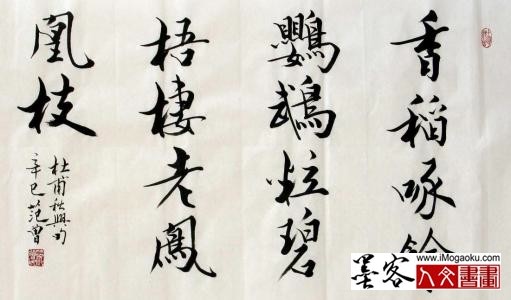 香稻啄餘
鸚鵡粒碧
梧棲老鳳
凰枝
杜甫秋興句
辛巳范曾
www.iMogaoku.com
墨客
人文書畫